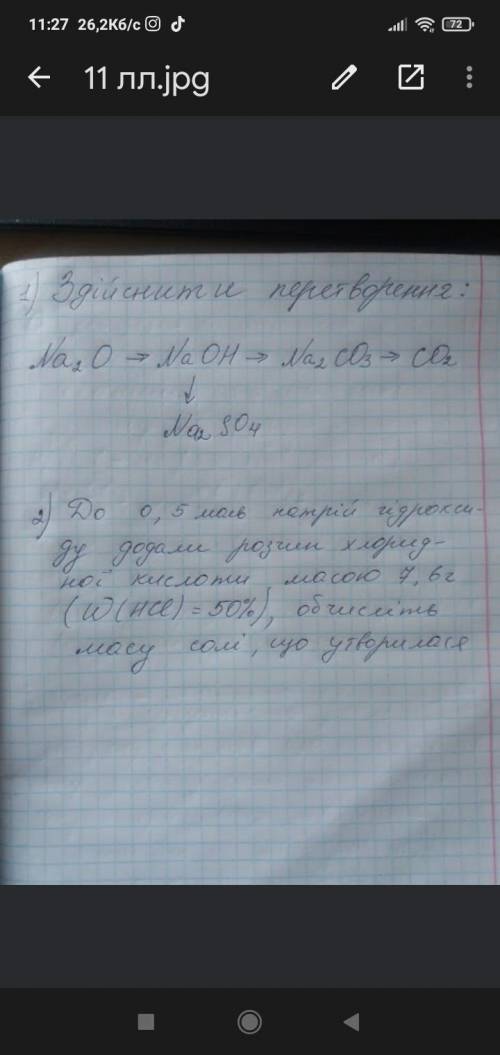 11:27 26,2Кб/с 72
11 лл.jpg
1) Здійснити перетворення:
Na₂O → NaOH → Na₂CO₃ → CO₂
↓
Na₂SO₄
2) До 0,5 моль натрій гідрокси-
ду додали розчин хлорид-
ної кислоти масою 7,6г
(W(HCl) = 50%), обчисліть
масу солі, що утворилася